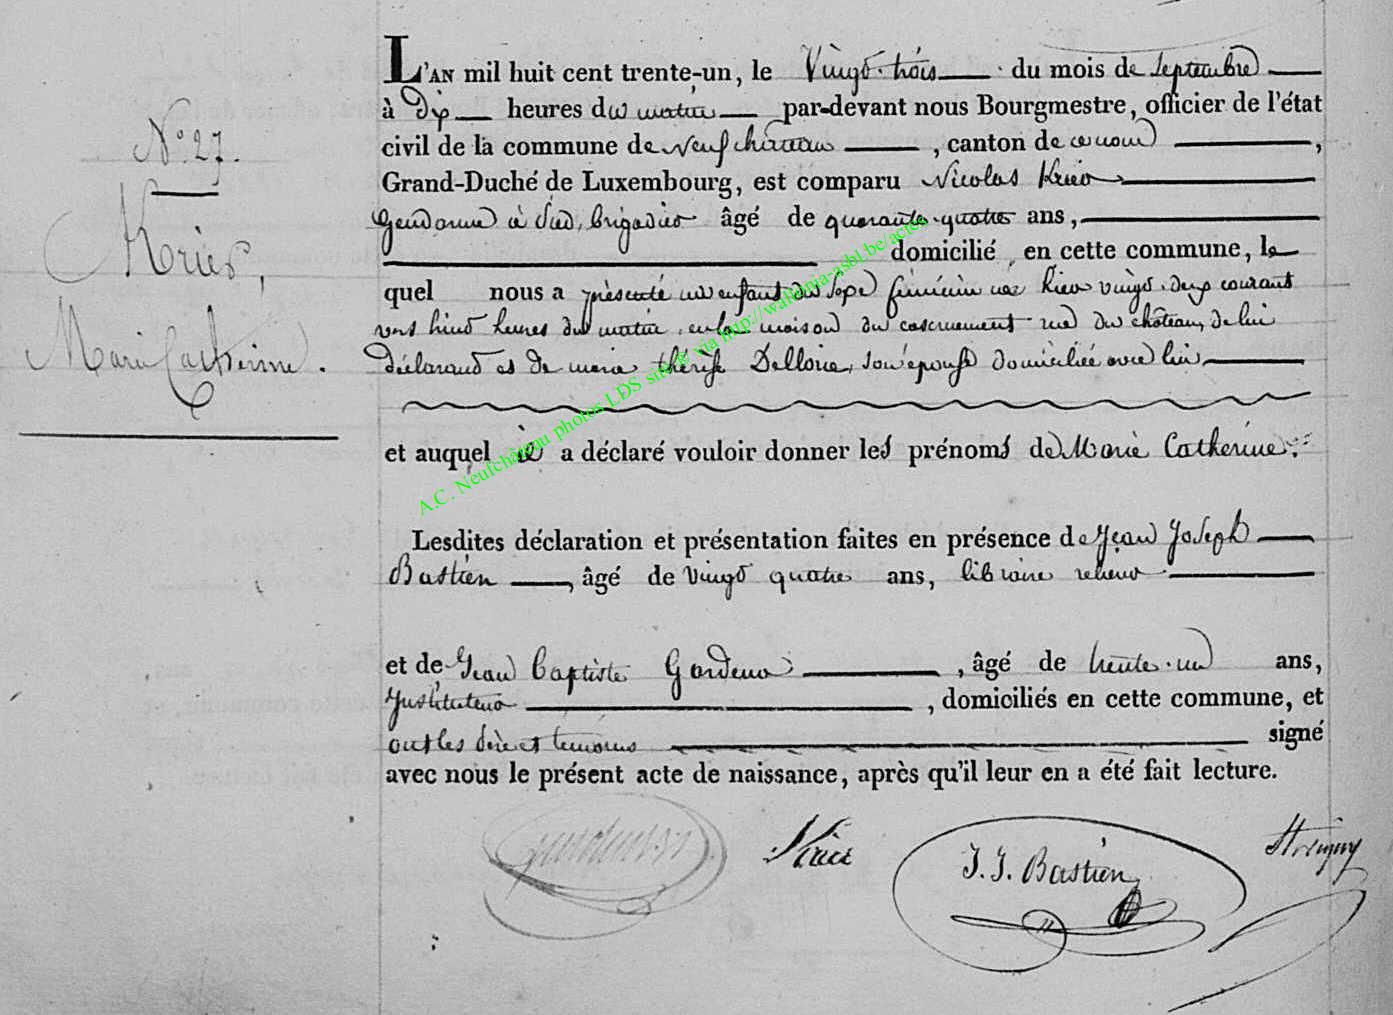 L'AN mil huit cent trente-un, le Vingt-trois du mois de septembre
à Dix heures du matin par-devant nous Bourgmestre, officier de l'état
civil de la commune de neufchâteau, canton de ce nom,
Grand-Duché de Luxembourg, est comparu Nicolas Krier
Gendarme à pied, brigadier âgé de quarante-quatre ans,
domicilié en cette commune, le
quel nous a présenté un enfant du sexe féminin née hier vingt-deux courant
vers huit heures du matin, en la maison du casernement rue du château, de lui
déclarant et de marie thérèse Delloie, son épouse domiciliée avec lui
et auquel il a déclaré vouloir donner les prénoms de Marie Catherine.
Lesdites déclaration et présentation faites en présence de Jean Joseph
Bastien, âgé de vingt quatre ans, libraire relieur
et de Jean baptiste Gardeur, âgé de trente-un ans,
Instituteur, domiciliés en cette commune, et
ont les père et témoins signé
avec nous le présent acte de naissance, après qu'il leur en a été fait lecture.
N° 27.
Krier,
Marie Catherine.
Krier
J. J. Bastien
A.C. Neufchâteau photos LDS site © via http://wallonia-asbl.be/actes